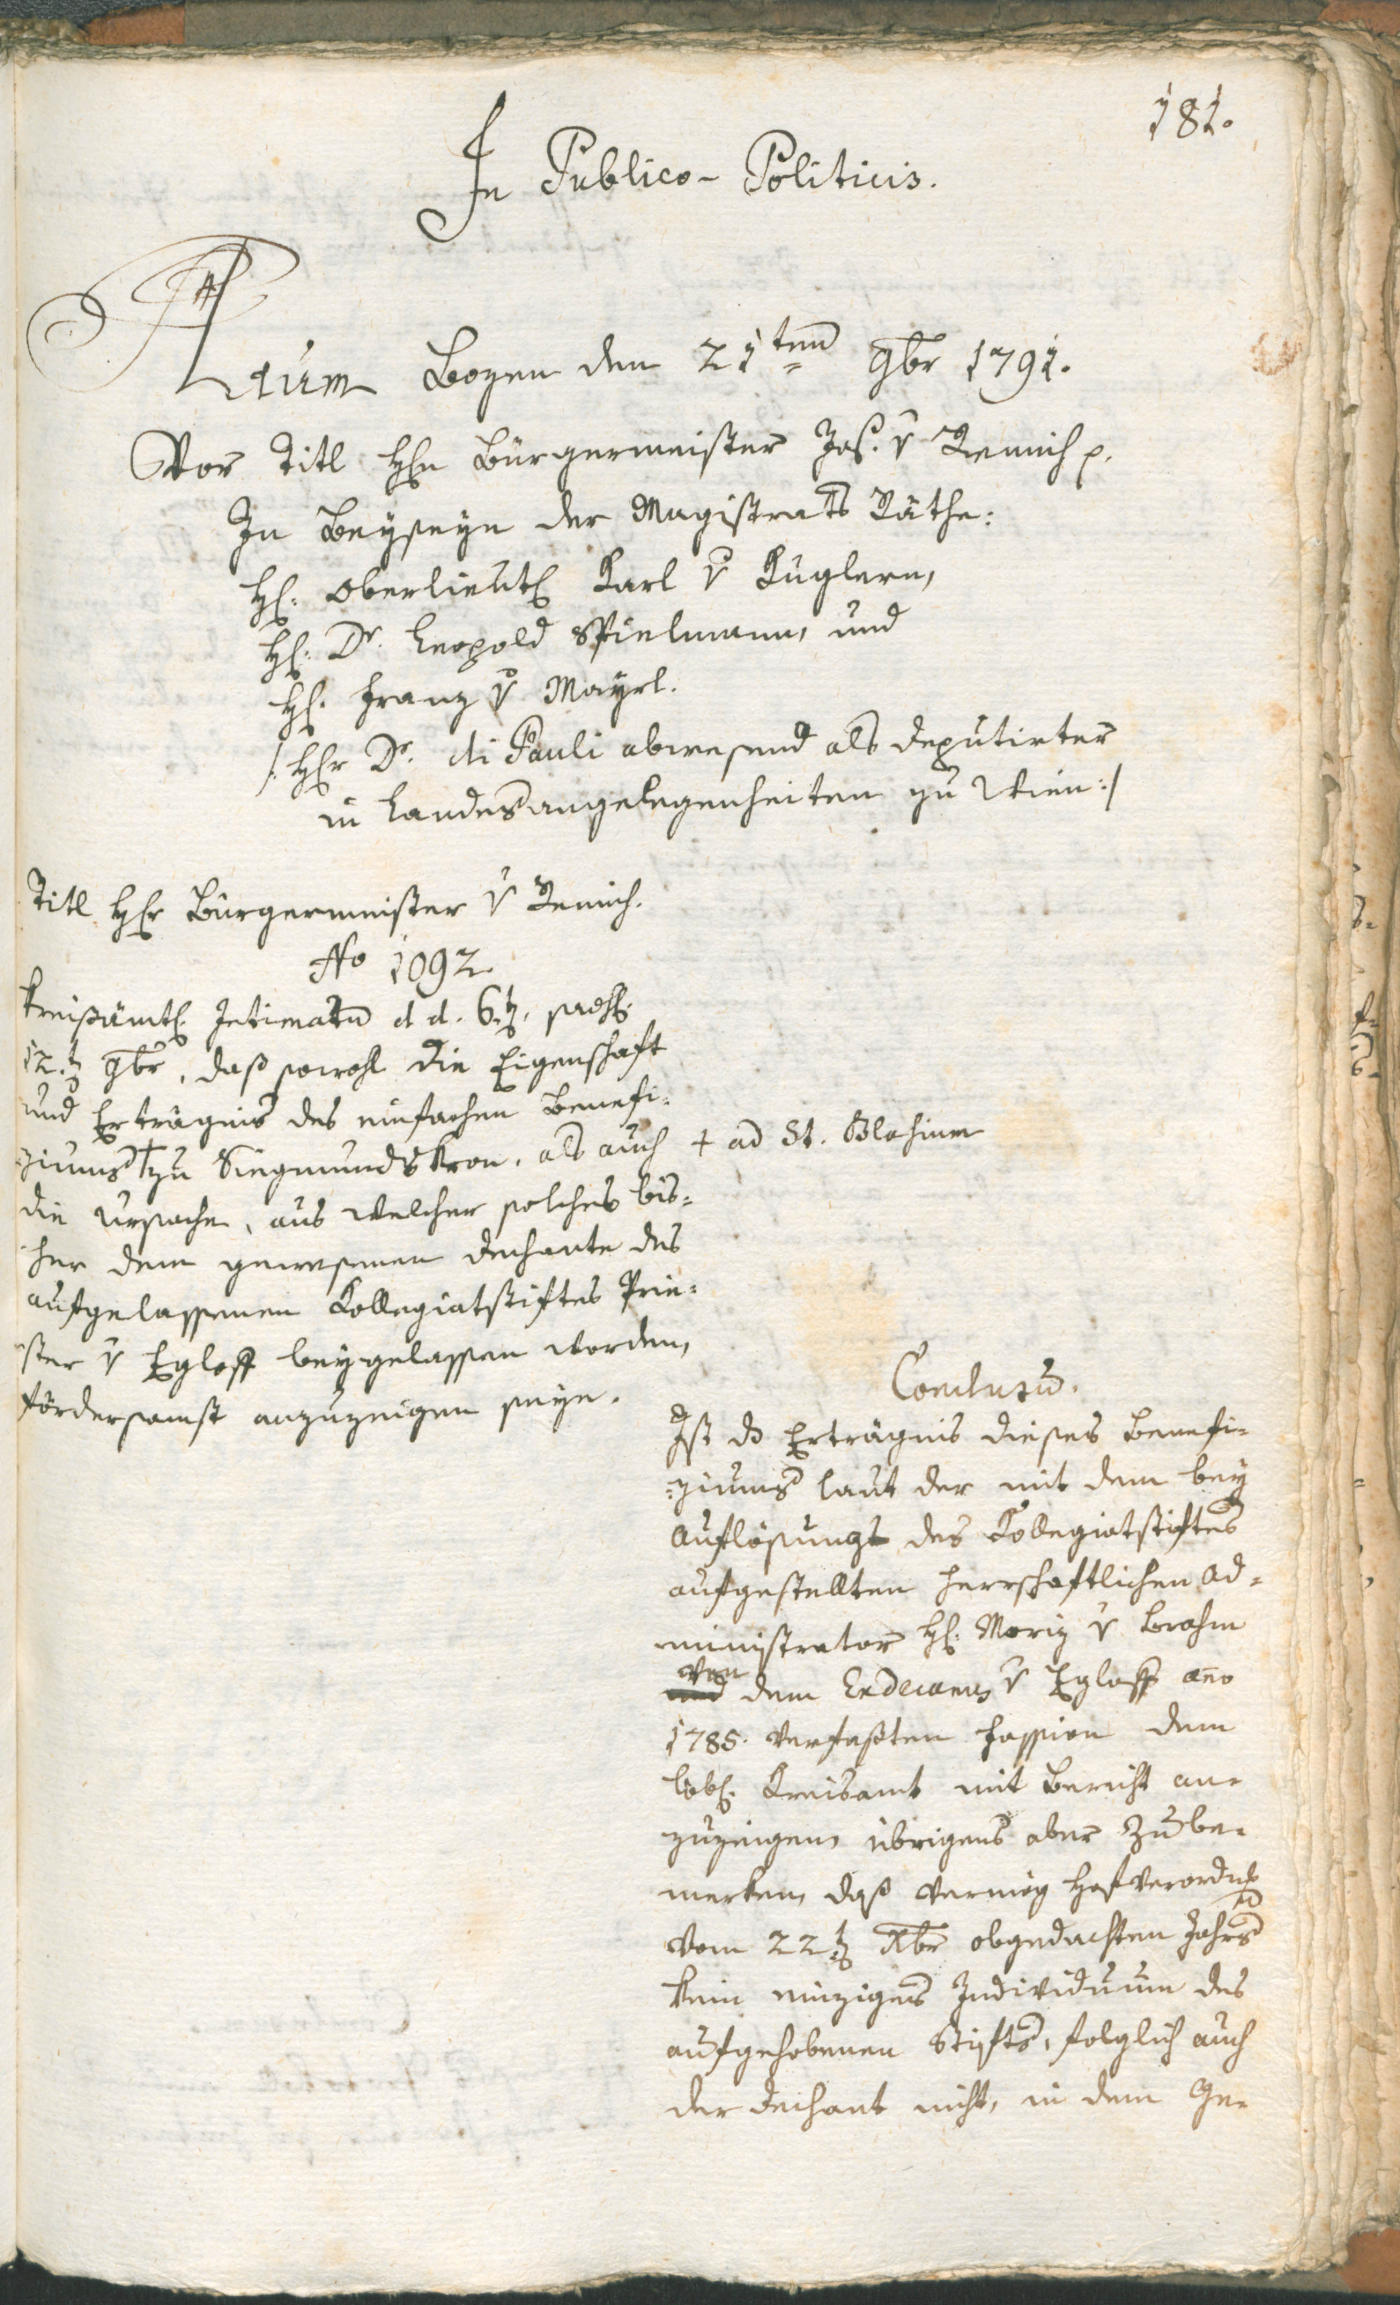 181.
In Publico-Politicis.
Actum Bozen den 21ten 9br 1791.
Vor Titl Hrn Bürgermeister Jos. v Remich p.
In Beyseyn der Magistrats Räthe:
H. Oberlieut. Karl v Kuglern,
H. Dr. Leopold Spielmann, und
H. Franz v Mayrl.
/: Hr Dr. di Pauli abwesend als Deputirter
in Landesangelegenheiten zu Wien :/
Titl Hr Bürgermeister v Remich.
No 1092.
Kreisämtl. Intimatum d. d. 6t, 
12.t 9br, daß sowohl die Eigenschaft
und Erträgnis des einfachen Benefi-
ziums + zu Siegmundskron, als auch
+ ad St. Blasium
die Ursache, aus welcher solches bis-
her dem gewesenen Dechante des
aufgelassenen Kollegiatstiftes Prie-
ster v Egloff beygelassen worden,
fördersamst anzuzeigen seye.
Conclusum.
Ist ds Erträgnis dieses Benefi-
ziums laut der mit dem bey
Auflösung des Kollegiatstiftes
aufgestellten herrschaftlichen Ad-
ministrator H. Moriz v Brahm
von
und dem Exdecano v Egloff ano
1785. verfaßten Fassion dem
löbl. Kreisamt mit Bericht an-
zuzeigen, übrigens aber zu be-
merken, daß vermög Hofverordng
vom 22t Xbr obgedachten Jahrs
kein einziges Individuum des
aufgehobenen Stifts, folglich auch
der Dechant nicht, in dem Ge-